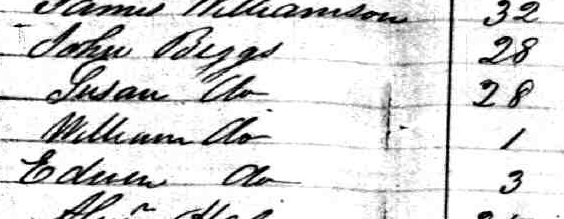 James Williamson 32
John Biggs 28
Susan do 28
William do 1
Edwin do 3